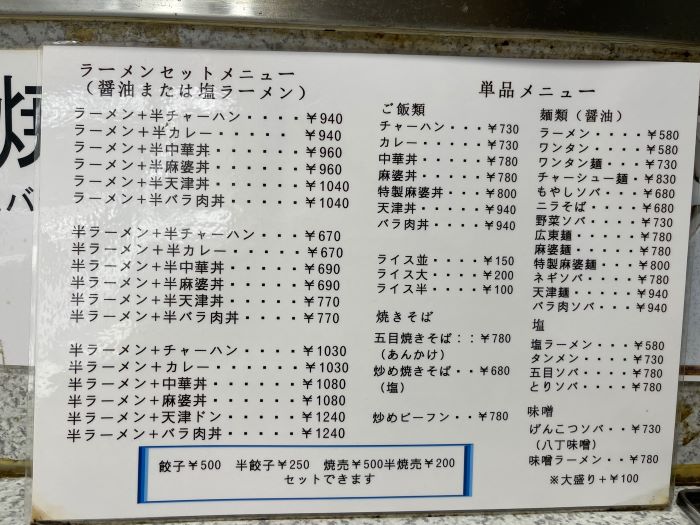 焼
バ
ラーメンセットメニュー
（醤油または塩ラーメン）
ラーメン＋半チャーハン・・・・￥940
ラーメン＋半カレー・・・・・￥940
ラーメン＋半中華丼・・・・・￥960
ラーメン＋半麻婆丼・・・・・￥960
ラーメン＋半天津丼・・・・・￥1040
ラーメン＋半バラ肉丼・・・・￥1040
半ラーメン＋半チャーハン・・・・￥670
半ラーメン＋半カレー・・・・・・￥670
半ラーメン＋半中華丼・・・・・￥690
半ラーメン＋半麻婆丼・・・・・￥690
半ラーメン＋半天津丼・・・・・￥770
半ラーメン＋半バラ肉丼・・・・￥770
半ラーメン＋チャーハン・・・・￥1030
半ラーメン＋カレー・・・・・・￥1030
半ラーメン＋中華丼・・・・・￥1080
半ラーメン＋麻婆丼・・・・・￥1080
半ラーメン＋天津ドン・・・・・￥1240
半ラーメン＋バラ肉丼・・・・・￥1240
単品メニュー
ご飯類
チャーハン・・・￥730
カレー・・・・・￥730
中華丼・・・・・￥780
麻婆丼・・・・・￥780
特製麻婆丼・・・￥800
天津丼・・・・・￥940
バラ肉丼・・・・￥940
ライス並・・・・￥150
ライス大・・・・￥200
ライス半・・・・￥100
焼きそば
五目焼きそば：：￥780
（あんかけ）
炒め焼きそば・・￥680
（塩）
炒めビーフン・・￥780
麺類（醤油）
ラーメン・・・・￥580
ワンタン・・・・￥580
ワンタン麺・・・￥730
チャーシュー麺・￥830
もやしソバ・・・￥680
ニラそば・・・・￥680
野菜ソバ・・・・￥730
広東麺・・・・・￥780
麻婆麺・・・・・￥780
特製麻婆麺・・・￥800
ネギソバ・・・・￥780
天津麺・・・・・￥940
バラ肉ソバ・・・￥940
塩
塩ラーメン・・・￥580
タンメン・・・・￥730
五目ソバ・・・・￥780
とりソバ・・・・￥780
味噌
げんこつソバ・・￥730
（八丁味噌）
味噌ラーメン・・￥780
※大盛り＋￥100
餃子￥500 半餃子￥250 焼売￥500半焼売￥200
セットできます